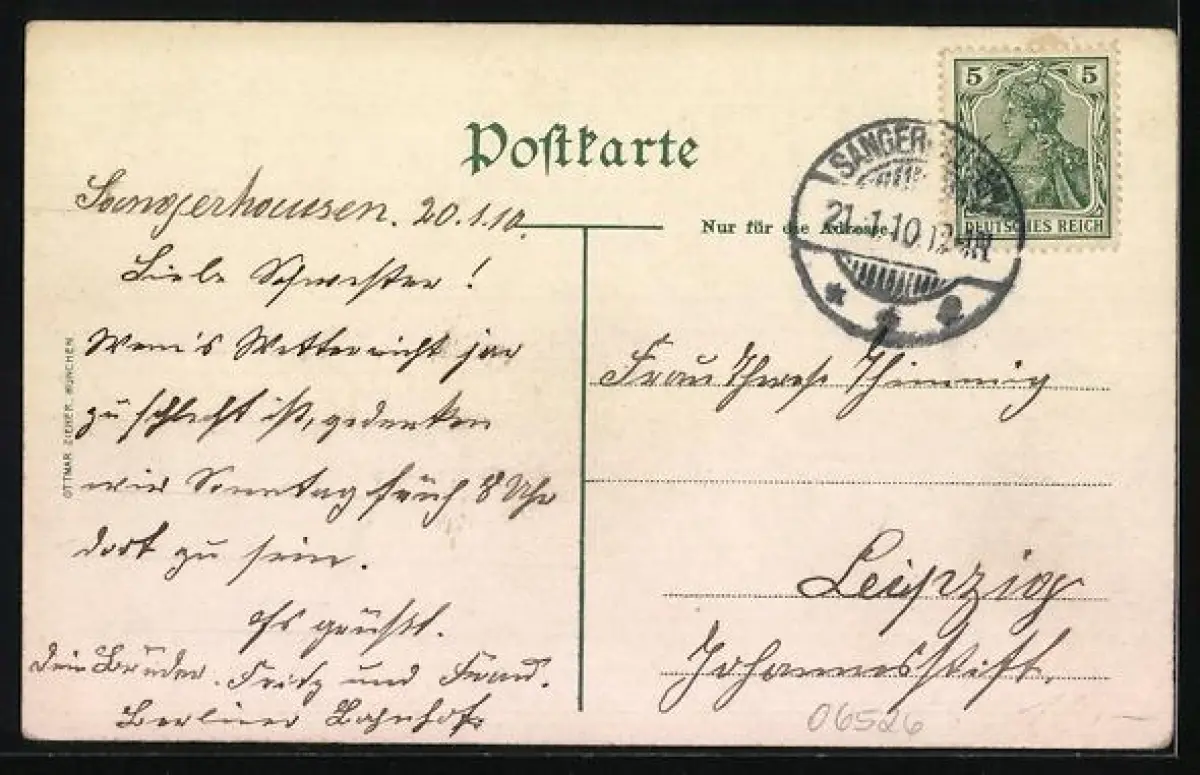 Postkarte
Nur für die Adresse.
5 5
DEUTSCHES REICH
SANGERHAUSEN
21.1.10 12-1N
OTTMAR ZIEHER, MÜNCHEN
Sangerhausen. 20.1.10.
Liebe Schwester!
Wenn's Wetter nicht gar
zu schlecht ist, gedenken
wir Sonntag früh 8 Uhr
dort zu sein.
Es grüßt.
Dein Bruder Fritz und Frau.
Berliner Bahnhof
Frau Therese Thinnig
Leipzig
Johannesstift.
06526